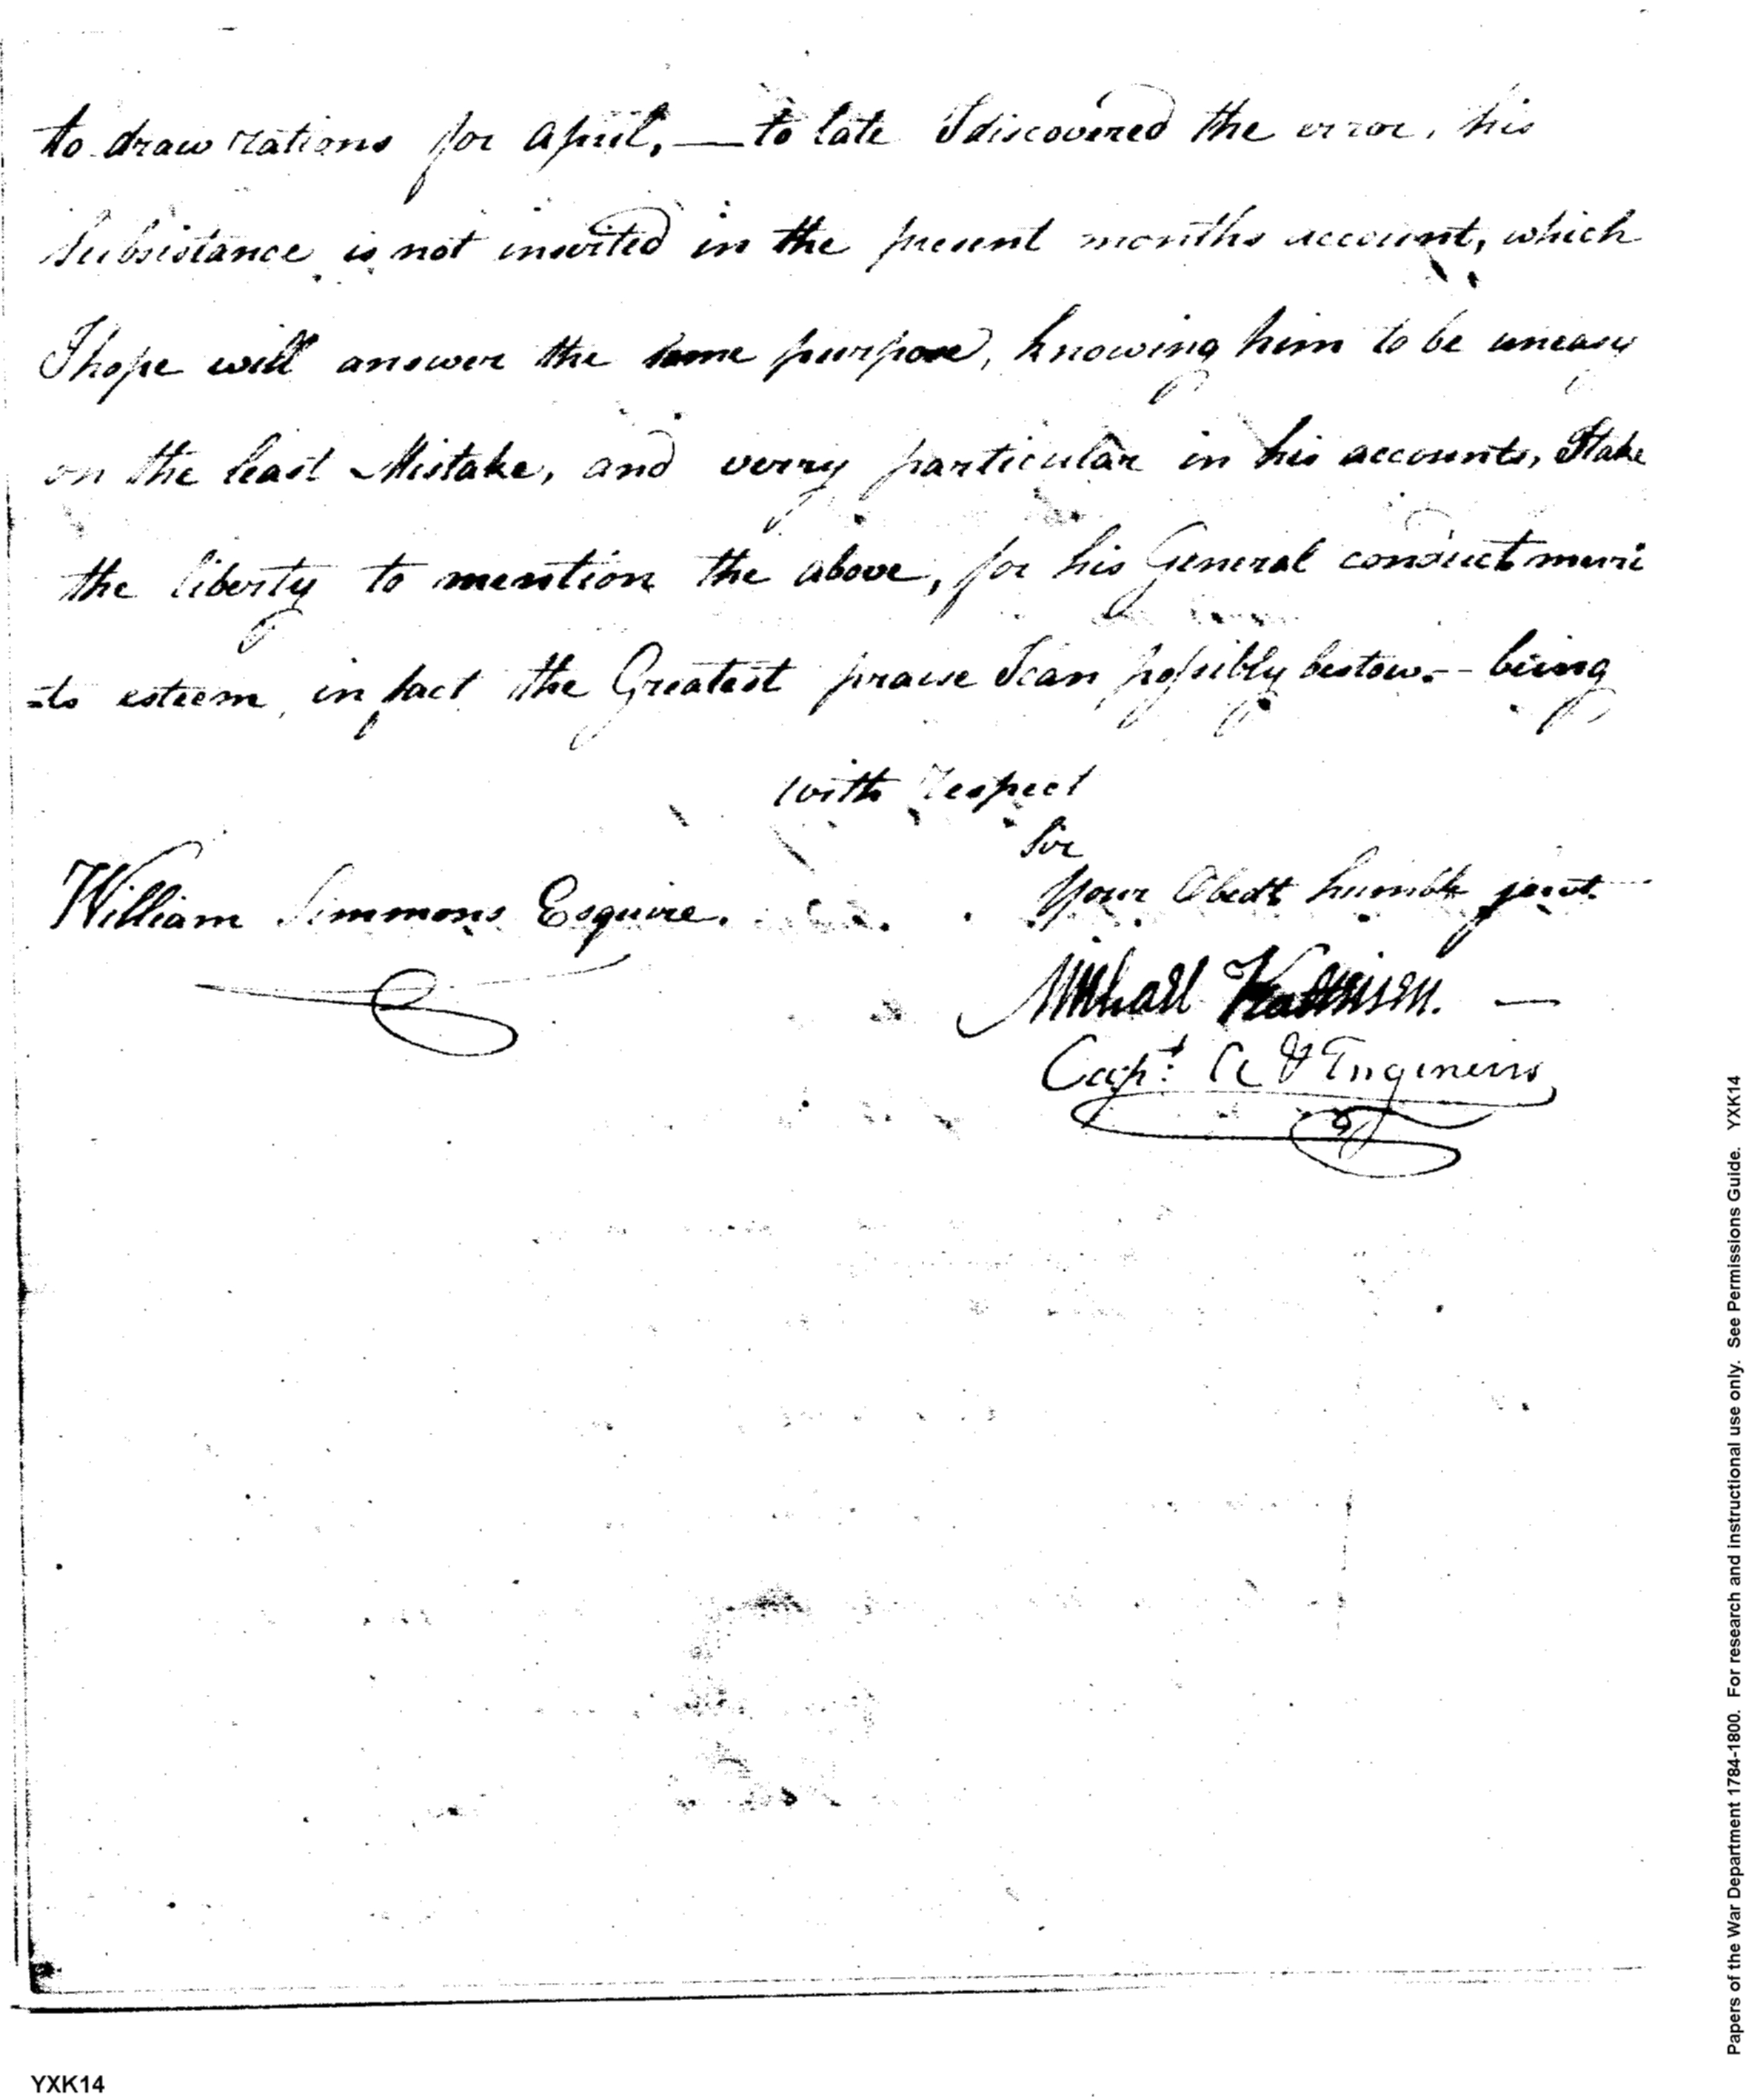 to draw rations for April, — to late I discovered the error, his
Subsistance is not inserted in the present months account, which
I hope will answer the same purpose, knowing him to be uneasy
on the least Mistake, and verry particular in his accounts, I take
the liberty to mention the above, for his General conduct meri
=ts esteem, in fact the Greatest praise I can possibly bestow. - being
with respect
Sir
Your Obedt humble servt.
William Simmons Esquire.
Michael Kalteisen. —
Capt: A & Engineers
Papers of the War Department 1784-1800. For research and instructional use only. See Permissions Guide. YXK14
YXK14